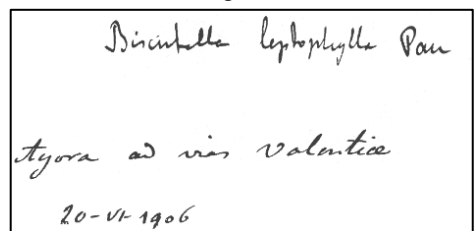 Biscutella leptophylla Pau
Ayora ad vias valentiae
20-VI-1906